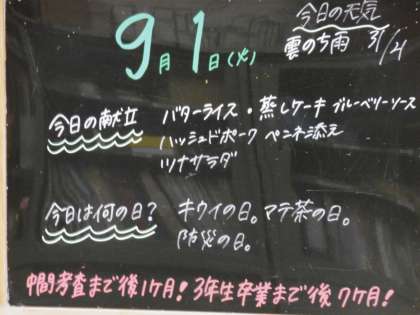 9月1日(火)
今日の天気
雲のち雨 31/21
今日の献立
バターライス・蒸しケーキ ブルーベリーソース
ハッシュドポーク ペンネ添え
ツナサラダ
今日は何の日?
キウイの日。マテ茶の日。
防災の日。
中間考査まで後1ヶ月! 3年生卒業まで後7ヶ月!